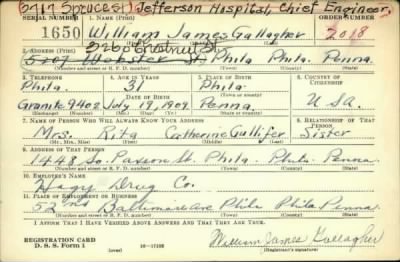 3717 Spruce St) Jefferson Hospital, Chief Engineer,
SERIAL NUMBER 1. NAME (Print) ORDER NUMBER
1650 William James Gallagher 2018
5260 Chestnut St.
2. ADDRESS (Print)
5407 Webster St. Phila Phila Penna.
(Number and street or R. F. D. number) (Town) (County) (State)
3. TELEPHONE 4. AGE IN YEARS 5. PLACE OF BIRTH 6. COUNTRY OF CITIZENSHIP
Phila. 31 Phila.
DATE OF BIRTH (Town or county)
Granite 9402 July 19, 1909 Penna. USA.
(Exchange) (Number) (Mo.) (Day) (Yr.) (State or country)
7. NAME OF PERSON WHO WILL ALWAYS KNOW YOUR ADDRESS 8. RELATIONSHIP OF THAT PERSON
Mrs. Rita Catherine Gullifer Sister
(Mr., Mrs., Miss) (First) (Middle) (Last)
9. ADDRESS OF THAT PERSON
1448 So. Paxson St. Phila. Phila. Penna.
(Number and street or R. F. D. number) (Town) (County) (State)
10. EMPLOYER'S NAME
Hagy Drug Co.
11. PLACE OF EMPLOYMENT OR BUSINESS
52nd Baltimore Ave Phila Phila Penna.
(Number and street or R. F. D. number) (Town) (County) (State)
I AFFIRM THAT I HAVE VERIFIED ABOVE ANSWERS AND THAT THEY ARE TRUE.
REGISTRATION CARD
D. S. S. Form 1 (over) 16—17105 William James Gallagher
(Registrant's signature)